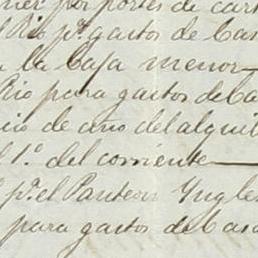 por portes de
Rio pr. gastos de
a la Caja menor
Rio para gastos de
de año del
1º. del corriente
pr. el Panteon Yngles
para gastos de Casa